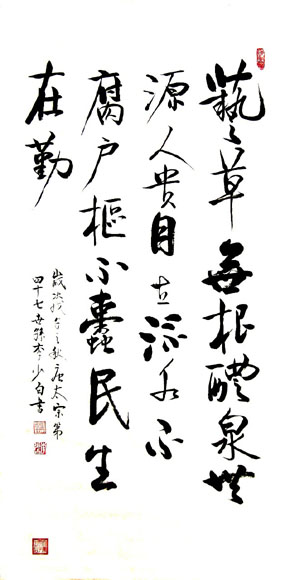 藝草無根醴泉無
源人貴自立流水不
腐户樞不蠹民生
在勤
歲次戊子之秋唐太宗第
四十七世孫李少白書